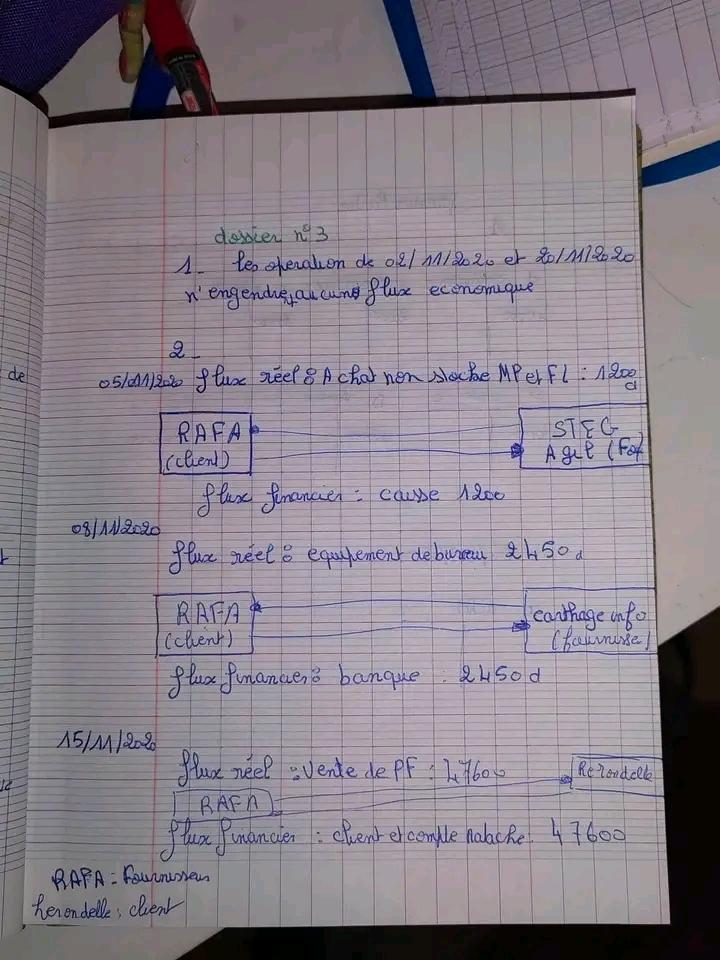 dossier n°3
1_ les operation de 02/11/2020 et 20/11/2020
n'engendre aucune flux economique
2_
05/11/2020 flux réel : Achat non stocke MP et FL : 1200
d
RAFA
(client)
STEG
Agil (For
flux financier : caisse 1200
08/11/2020
flux réel : equipement de bureau 2450d
RAFA
(client)
carthage info
(fournisse)
flux financier : banque : 2450d
15/11/2020
flux réel : Vente de PF : 47600
RAFA
flux financier : client et compte 47600
RAFA = Fournisseur
herondelle : client
de